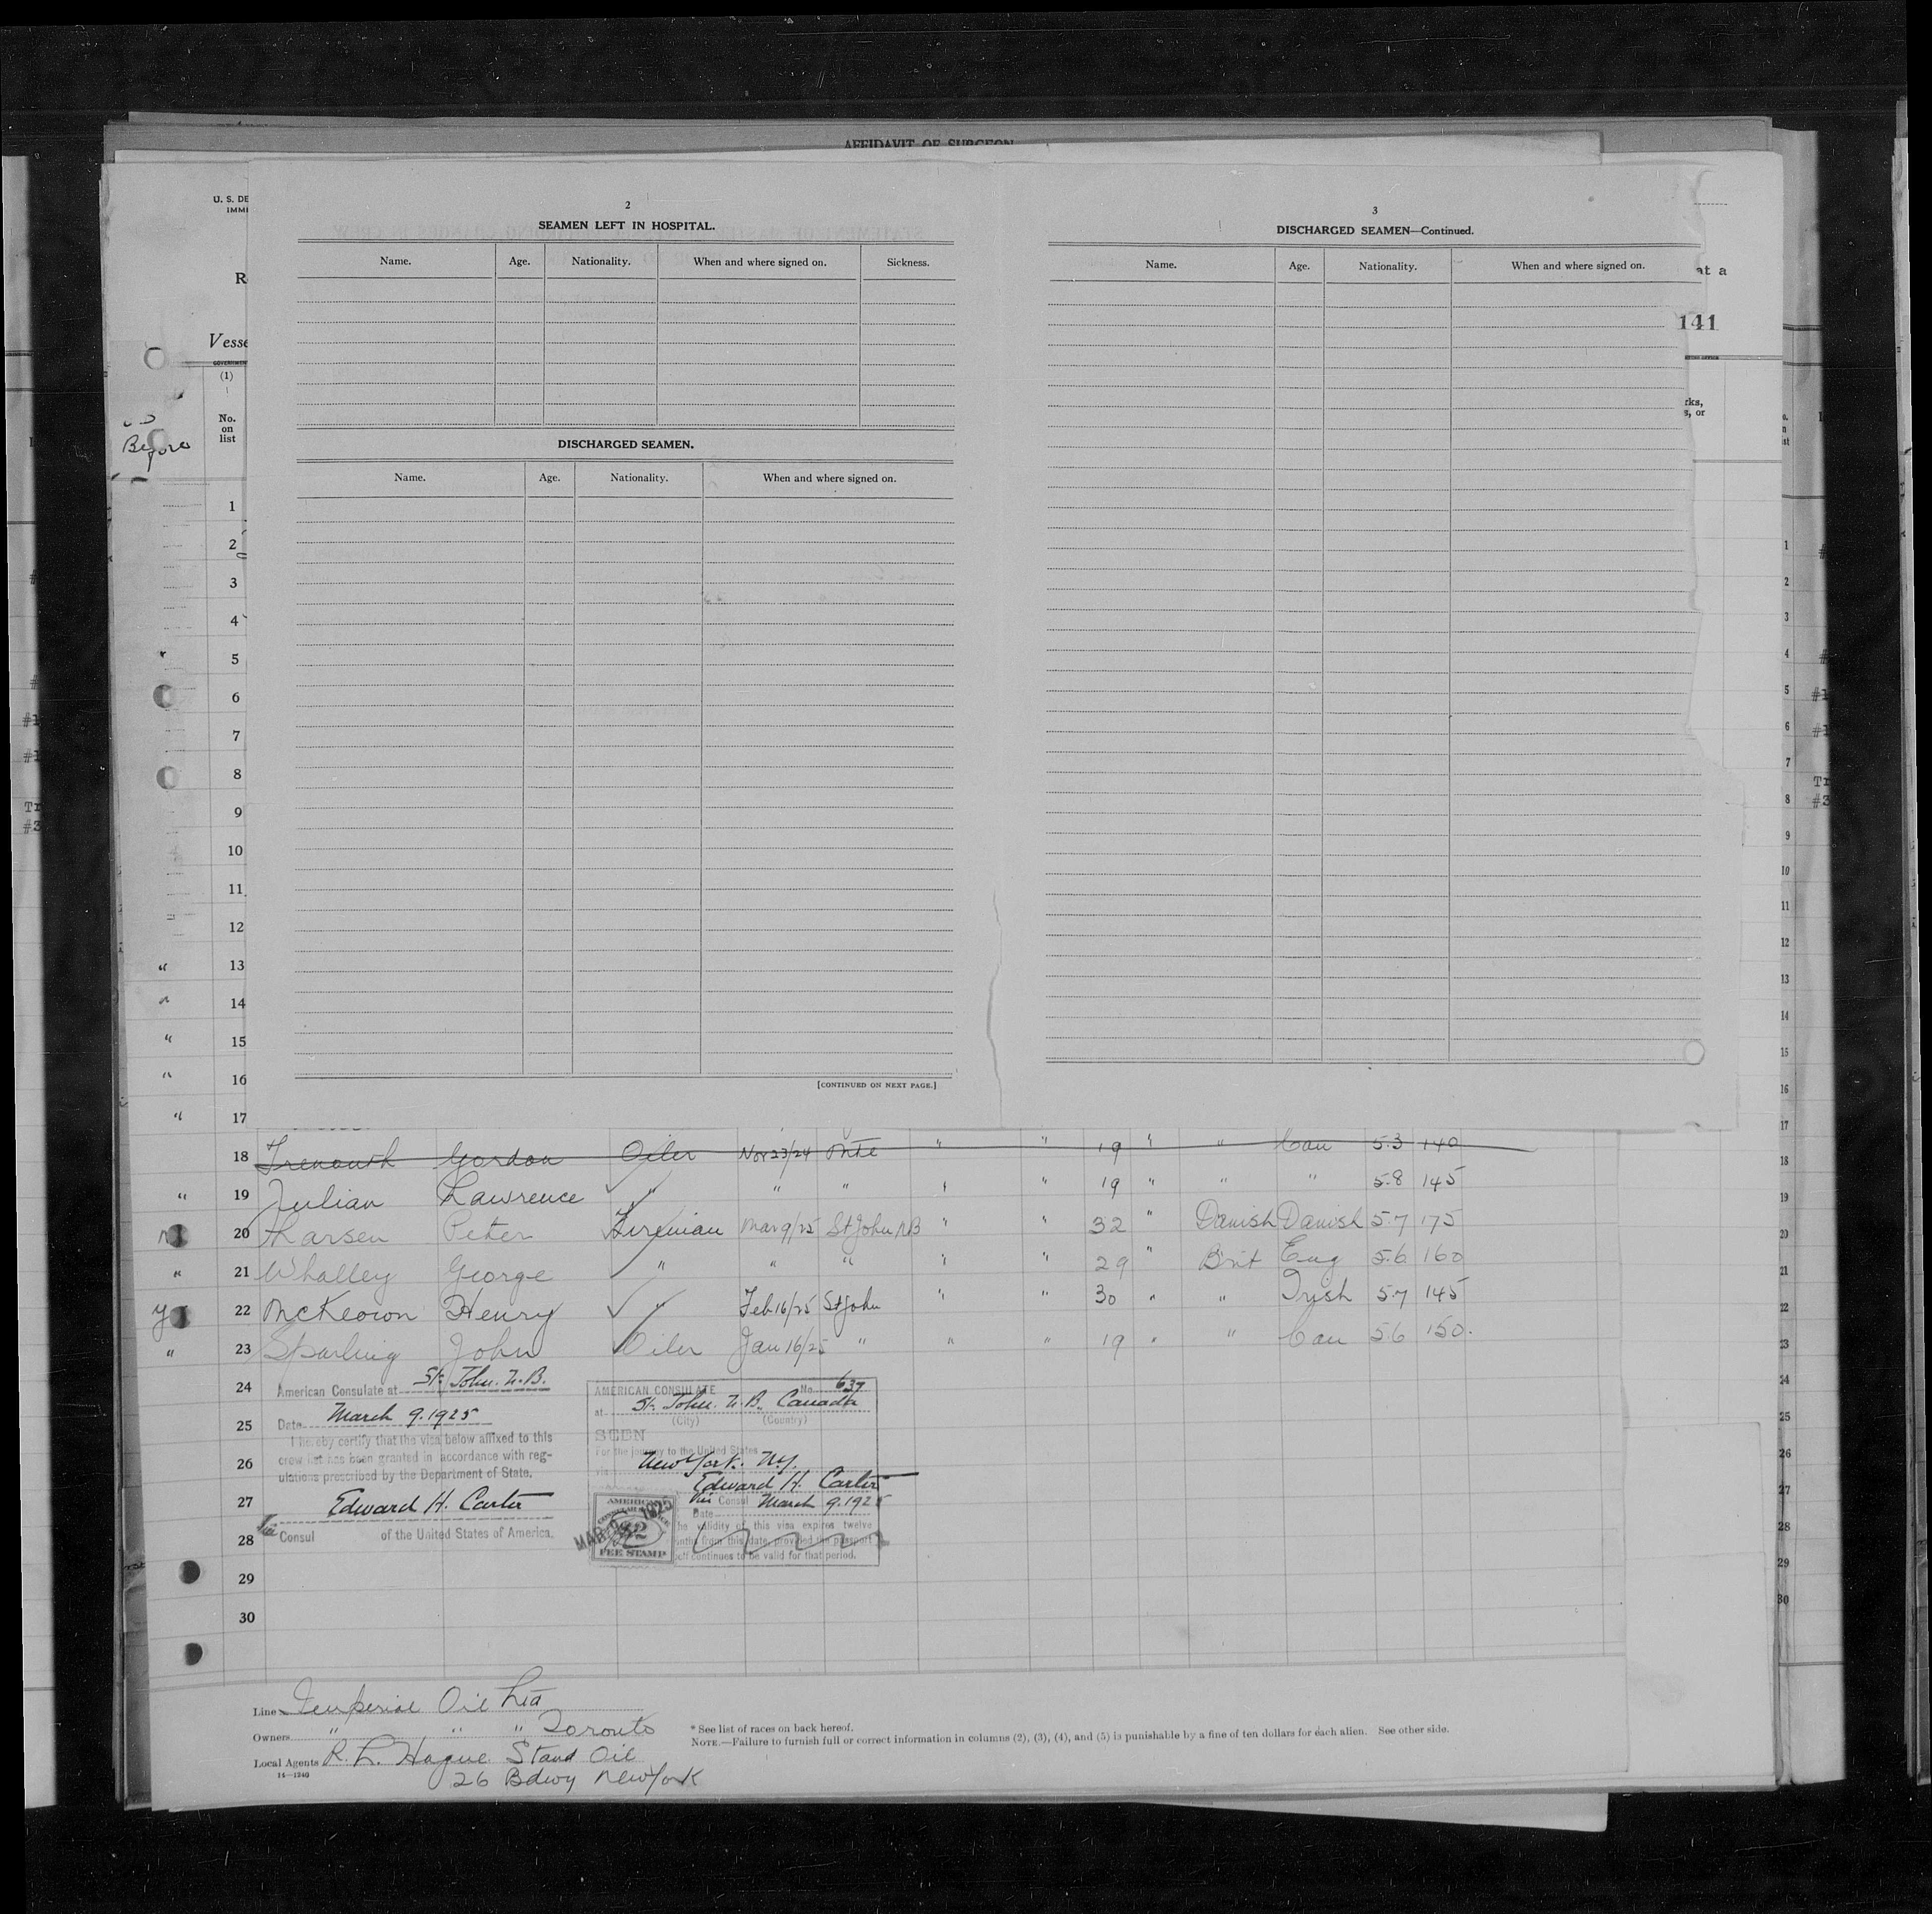 AFFIDAVIT OF SURGEON
U. S. DE
IMMI
R
Vesse
(1)
No.
on
list
Before
2
SEAMEN LEFT IN HOSPITAL.
Name. Age. Nationality. When and where signed on. Sickness.
DISCHARGED SEAMEN.
Name. Age. Nationality. When and where signed on.
[CONTINUED ON NEXT PAGE.]
3
DISCHARGED SEAMEN—Continued.
Name. Age. Nationality. When and where signed on.
at a
141
rks,
s, or
1
2
3
4
5
6
7
8
9
10
11
12
" 13
" 14
" 15
" 16
" 17
18 Trenouth Gordon Oiler Nov 23/24 " " 19 " " Can 5.3 140
" 19 Julian Lawrence " " " " " 19 " " " 5.8 145
20 Larsen Peter Fireman Mar 9/25 St John NB " " 32 " Danish Danish 5.7 175
" 21 Whalley George " " " " " 29 " Brit Eng 5.6 160
22 McKeown Henry " Feb 16/25 St John " " 30 " " Irish 5.7 145
" 23 Sparling John Oiler Jan 16/25 " " " 19 " " Can 5.6 150.
24
25
26
27
28
29
30
American Consulate at St. John. N.B.
Date March 9. 1925
I hereby certify that the visa below affixed to this
crew list has been granted in accordance with reg-
ulations prescribed by the Department of State.
Edward H. Carter
Vice Consul of the United States of America.
AMERICAN CONSULATE No. 637
at St. John. N.B. Canada
(City) (Country)
SEEN
For the journey to the United States
via New York. N.Y.
Edward H. Carter
Vice Consul March 9. 1925
Date
The validity of this visa expires twelve
months from this date, provided the passport
itself continues to be valid for that period.
AMERICAN
CONSULAR SERVICE
$2
FEE STAMP
MAR 9 1925
Line Imperial Oil Ltd
Owners " " " Toronto
Local Agents R. L. Hague Stand Oil
14—1240
26 Bdwy New York
* See list of races on back hereof.
NOTE.—Failure to furnish full or correct information in columns (2), (3), (4), and (5) is punishable by a fine of ten dollars for each alien. See other side.
1
2
3
4
5
6
7
8
9
10
11
12
13
14
15
16
17
18
19
20
21
22
23
24
25
26
27
28
29
30